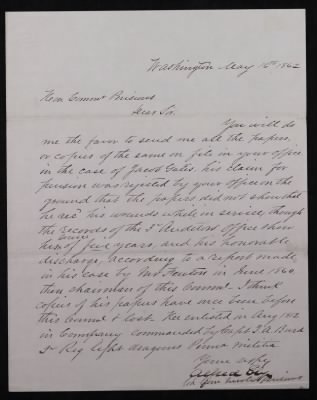 Washington May 16th 1862
Hon Commr Pensions
Dear Sir.
You will do
me the favor to send me all the papers
or copies of the same on file in your office
in the case of Jacob Gates, his claim for
Pension was rejected by your office on the
ground that the papers did not show that
he recd his wounds while in service, though
the records of the 3d Auditors office show
him of five years, and his honorable
discharge, according to a report made
in his case by Mr Fenton in June 1860
then chairman of this Comme. I think
copies of his papers have once been before
this Comme & lost. He enlisted in Aug 1812
in Company commanded by Capt
Reg light dragoons Penna Militia
Yours
Alfred Ely